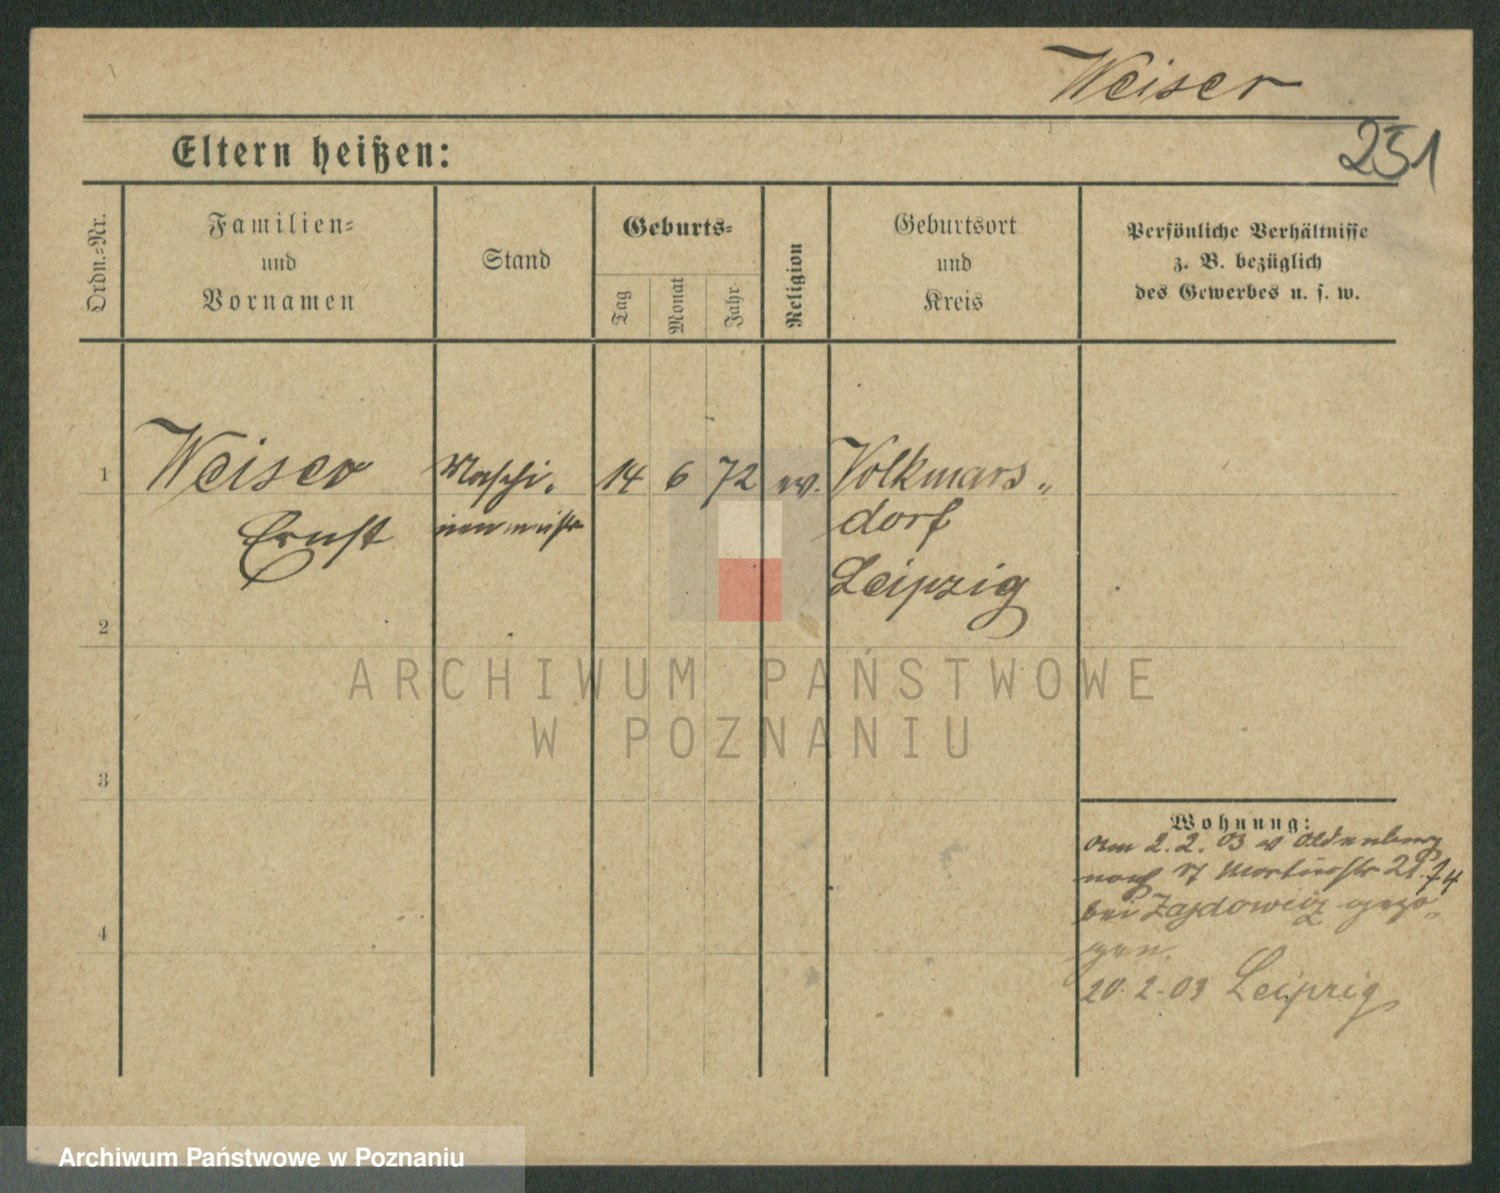 Weiser
251
Eltern heißen:
Ordn.-Nr.
Familien-
und
Vornamen
Stand
Geburts-
Tag
Monat
Jahr
Religion
Geburtsort
und
Kreis
Persönliche Verhältnisse
z. B. bezüglich
des Gewerbes u. s. w.
1
Weiser
Ernst
Maschi-
nenmeistr
14
6
72
ev.
Volkmars-
dorf
Leipzig
2
3
4
Wohnung:
Am 2. 2. 03 v Oldenburg
nach Martinstr 21
bei Zajdowicz gezo-
gen.
20. 2. 03 Leipzig
ARCHIWUM PAŃSTWOWE
W POZNANIU
Archiwum Państwowe w Poznaniu